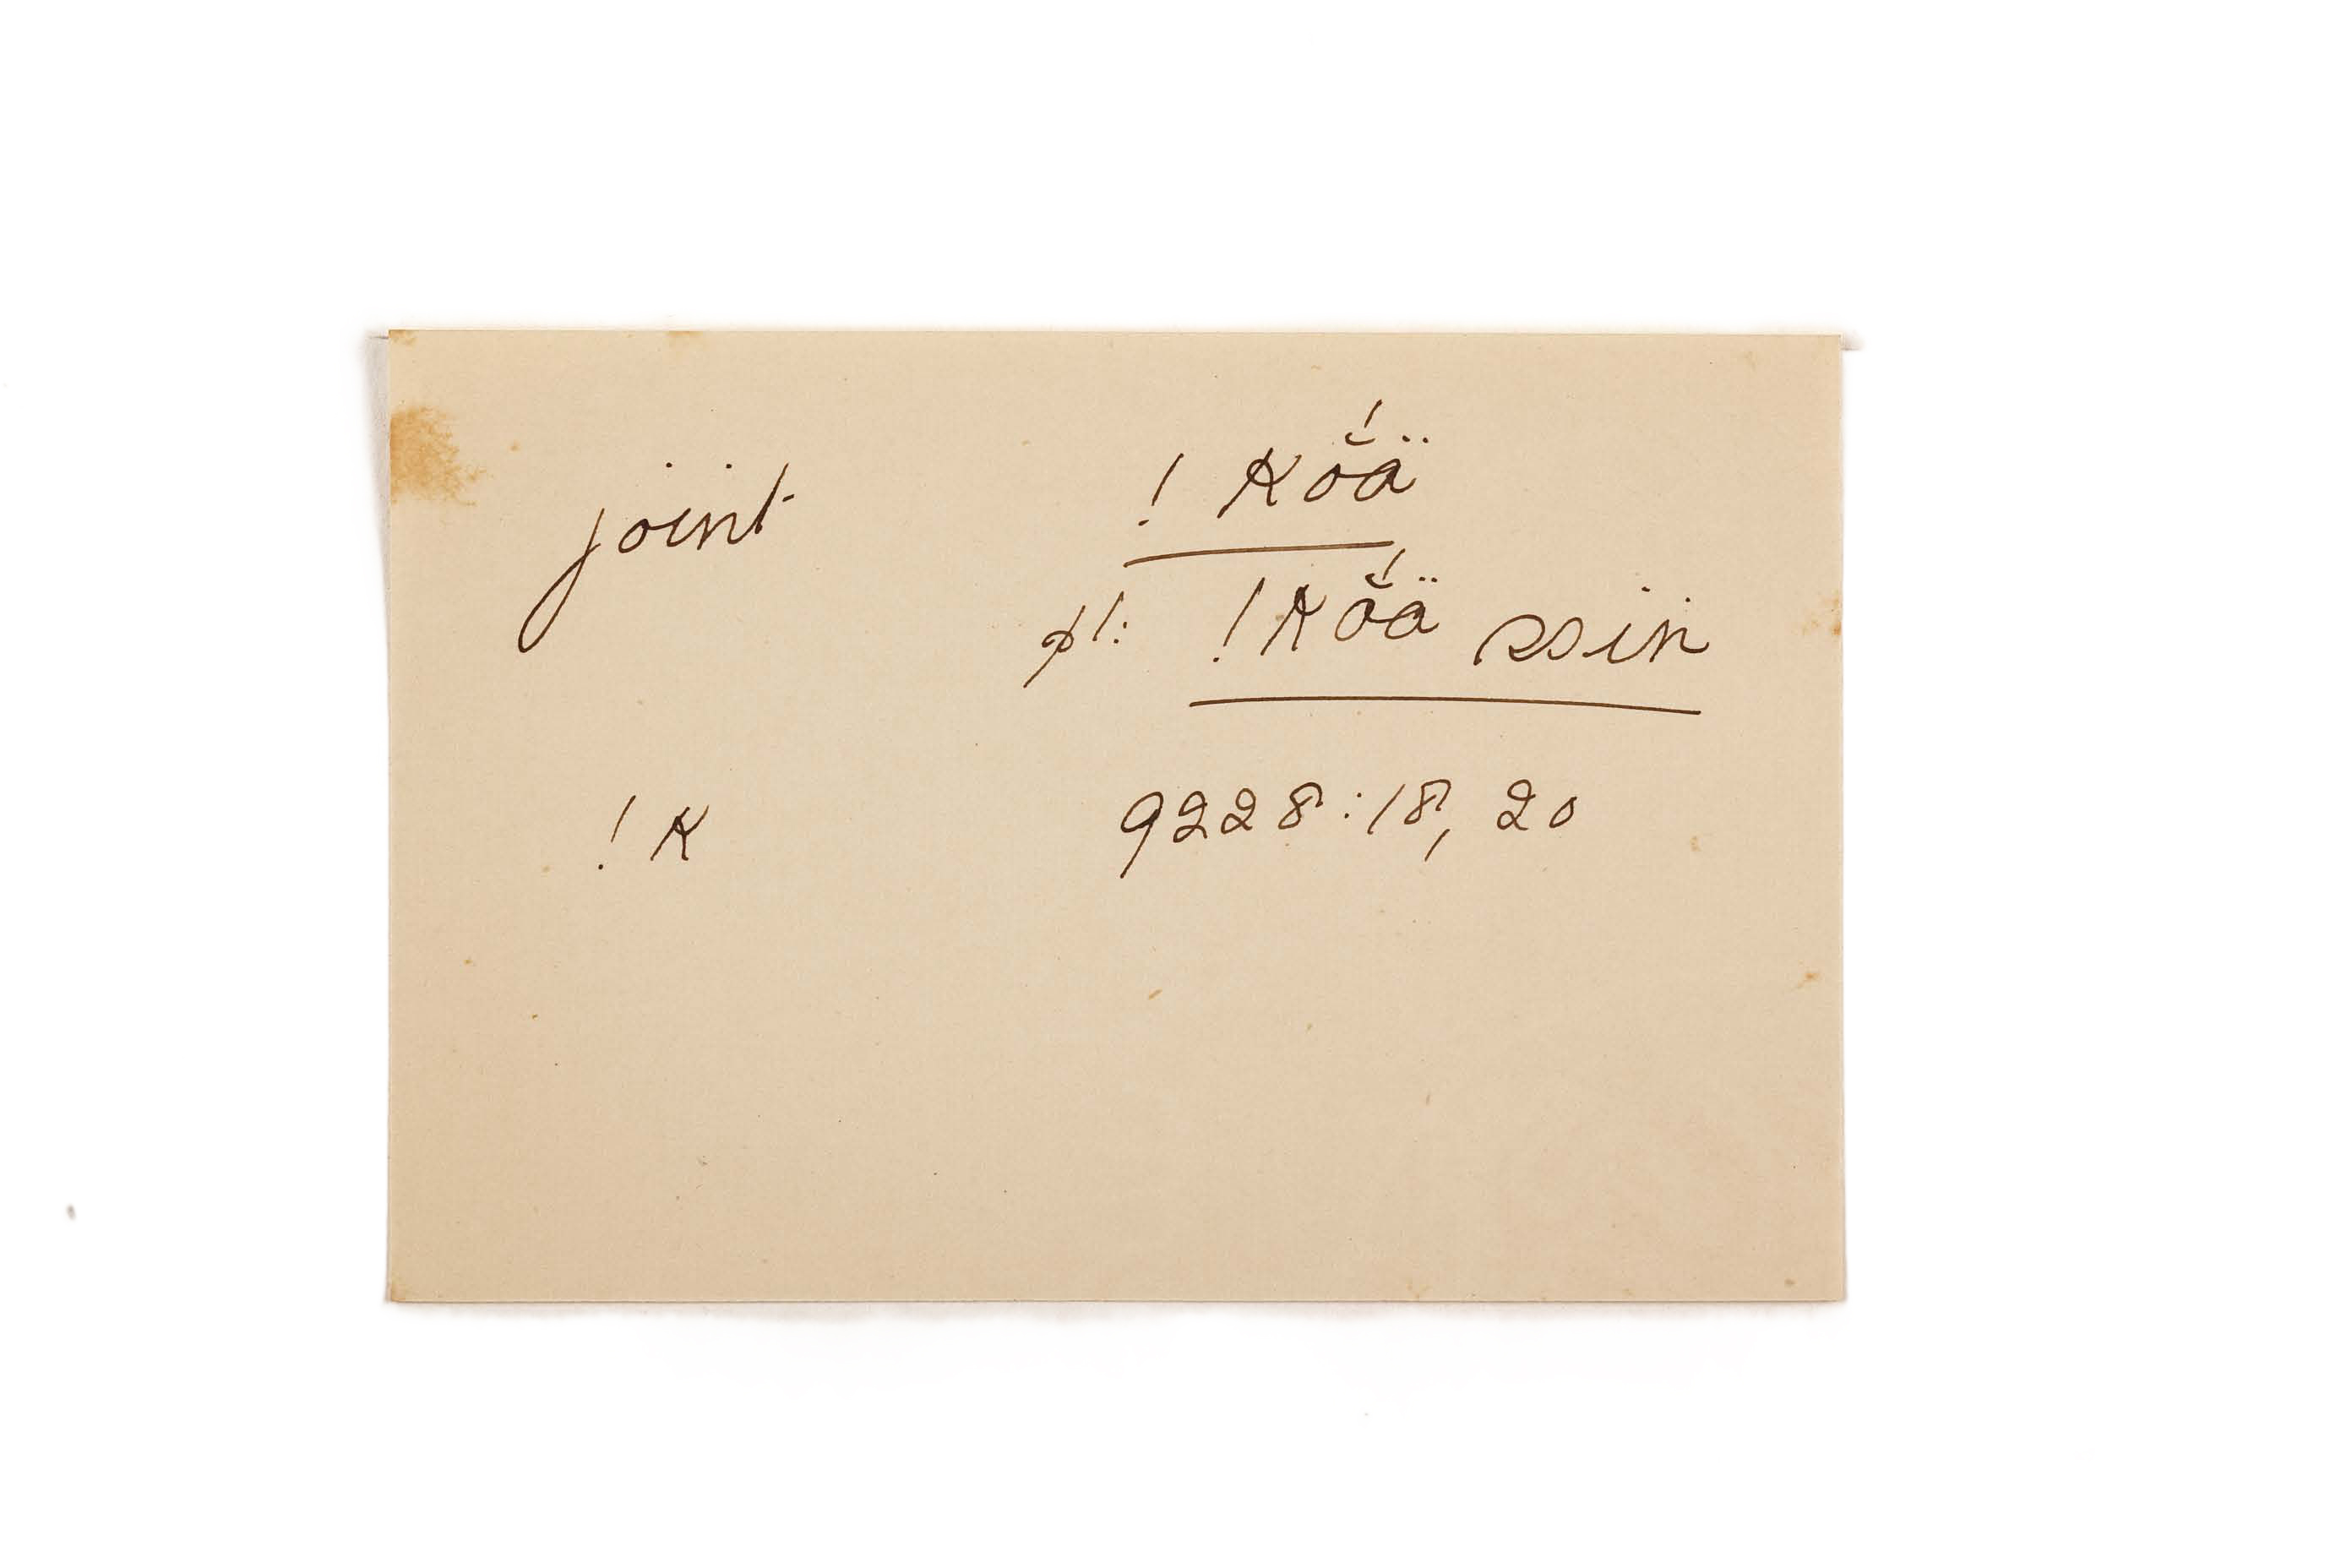 joint ! kŏ́ä
pl: ! kŏ́ä ssin
! k 9228:18, 20